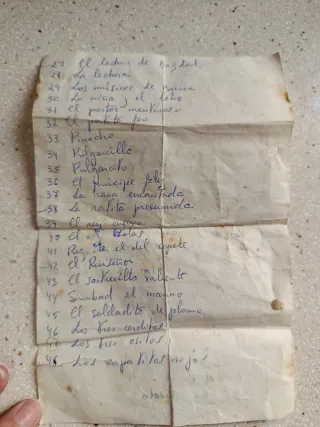 27 El ladron de Bagdad
28 La lechera
29 Los músicos de Brema
30 La niña y el lobo
31 El pastor mentiroso
32 El patito feo
33 Pinocho
34 Pulgarcilla
35 Pulgarcito
36 El principe feliz
37 La rana encantada
38 La ratita presumida
39 El rey
40 El
41 Riquete el del copete
42 El Ruiseñor
43 El sastrecillo valiente
44 Simbad el marino
45 El soldadito de plomo
46 Los tres cerditos
Los tres ositos
48 Los zapatitos rojos